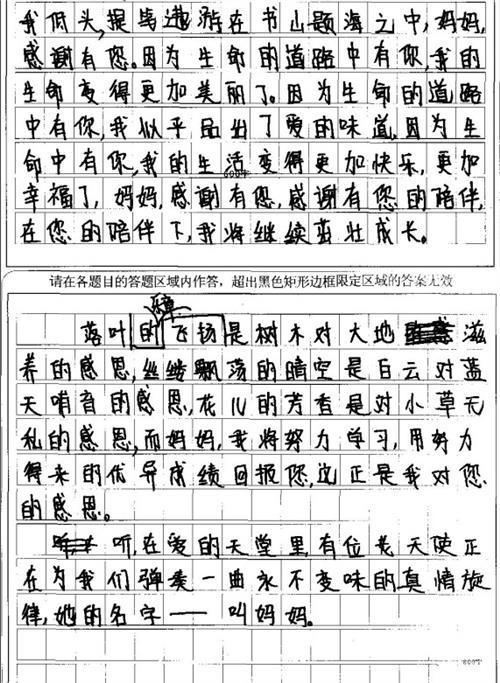 我低头,提笔遨游在书山题海之中,妈妈,
感谢有您。因为生命的道路中有你,我的
生命变得更加美丽了。因为生命的道路
中有你,我似乎品出了爱的味道。因为生
命中有你,我的生活变得更加快乐,更加
600字
幸福了,妈妈,感谢有您,感谢有您的陪伴,
在您的陪伴下,我将继续茁壮成长。
请在各题目的答题区域内作答，超出黑色矩形边框限定区域的答案无效
落叶的飞扬是树木对大地滋
养的感恩,丝缕飘荡的晴空是白云对蓝
天哨音的感恩,花儿的芳香是对小草无
私的感恩,而妈妈,我将努力学习,用努力
得来的优异成绩回报您,这正是我对您
的感恩。
听,在爱的天堂里,有位老天使正
在为我们弹奏一曲永不变味的真情旋
律,她的名字——叫妈妈。
800字